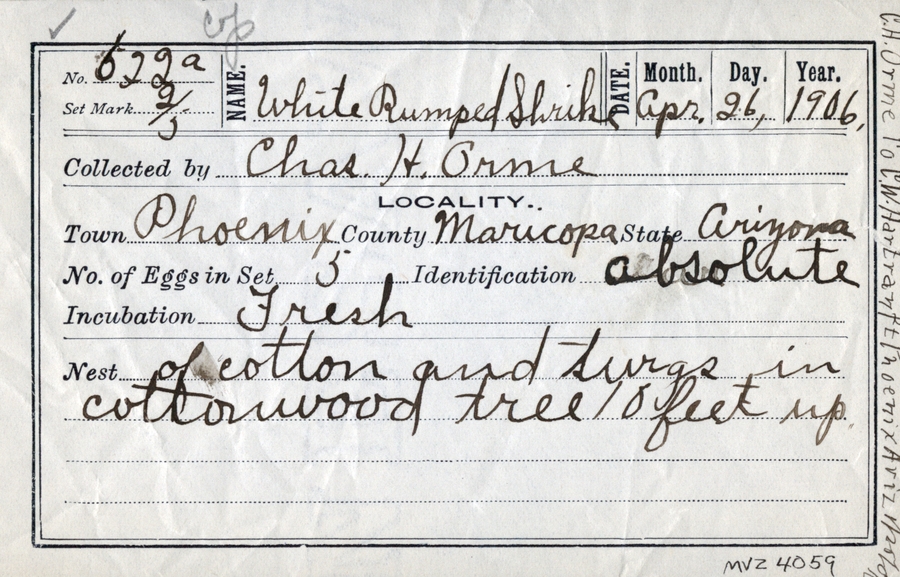 No. 622a
Set Mark 2/5
NAME. White Rumped Shrike
DATE. Month. Day. Year.
Apr. 26, 1906,
Collected by Chas. H. Orme
LOCALITY.
Town Phoenix County Maricopa State Arizona
No. of Eggs in Set 5 Identification absolute
Incubation Fresh
Nest of cotton and twigs in
cottonwood tree 10 feet up
C.H. Orme To C.W. Hartranft Phoenix Ariz
MVZ 4059